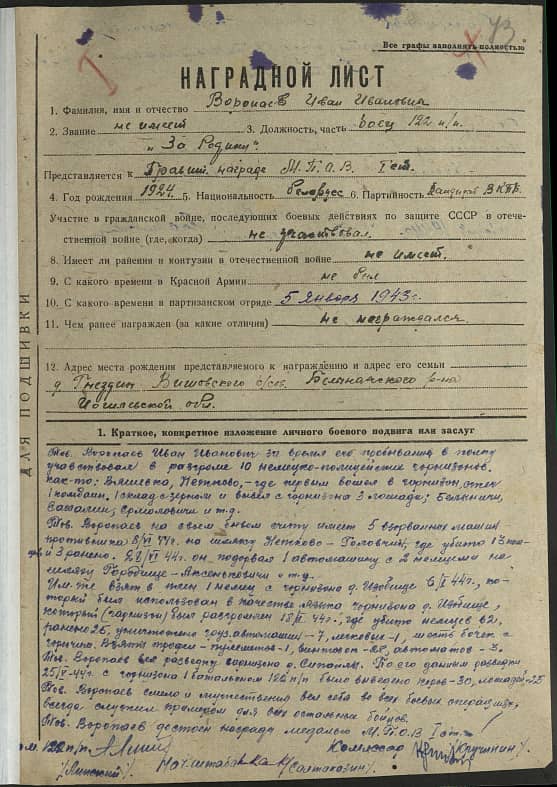 73
Все графы заполнять полностью
НАГРАДНОЙ ЛИСТ
1. Фамилия, имя и отчество Воропаев Иван Иванович
2. Звание не имеет 3. Должность, часть боец 122 п/п.
"За Родину".
Представляется к Правит. награде М.П.О.В. I ст.
4. Год рождения 1924. 5. Национальность белорус 6. Партийность Кандидат ВКПб
Участие в гражданской войне, последующих боевых действиях по защите СССР в отече-
ственной войне (где, когда) не участвовал.
8. Имеет ли ранения и контузии в отечественной войне не имеет.
9. С какого времени в Красной Армии не был
10. С какого времени в партизанском отряде 5 января 1943 г.
11. Чем ранее награжден (за какие отличия) не награждался.
12. Адрес места рождения представляемого к награждению и адрес его семьи
д. Гнездин Вишовского с/сов. Белыничского р-на
Могилевской обл.
ДЛЯ ПОДШИВКИ
1. Краткое, конкретное изложение личного боевого подвига или заслуг
Тов. Воропаев Иван Иванович за время его пребывания в полку
участвовал в разгроме 10 немецко-полицейских гарнизонов.
как-то: Вишевка, Нежково, - где первым вошел в гарнизон,
1 комбайн, 1 склад с зерном и вывел с гарнизона 3 лошади; Белыничи,
Сахалин, Ермоловичи и т.д.
Тов. Воропаев на своем боевом счету имеет 5 взорванных машин
противника 8/VI 44г. на шляху Нежково - Головчин, где убито 13
и 3 ранено. 28/VI 44г. он подорвал 1 автомашину с 2 немцами на
шляху Городище - Аксеньковичи и т.д.
Им же взят в плен 1 немец с гарнизона д. Изобище 6/VI 44г., ко-
торый был использован в качестве языка гарнизона д. Изобище,
который (гарнизон) был разгромлен 18/VI 44г., где убито немцев 82,
ранено 25, уничтожено груз. автомашин - 7, легковых - 1, шесть бочек с
горючим. Взяты трофеи - пулеметов - 1, винтовок - 28, автоматов - 3.
Тов. Воропаев вел разведку гарнизона д. Сипайлы. По его данным разведки
25/VI-44г. с гарнизона 1 батальоном 122 п/п было выведено коров - 30, лошадей - 25
Тов. Воропаев смело и мужественно вел себя во всех боевых операциях,
всегда служил примером для всех остальных бойцов.
Тов. Воропаев достоин награды медалью М.П.О.В I ст.
ком. 122 п/п
/Линский/
Нач. штаба к-н (Салтаказин).
Комиссар (Крупнин).